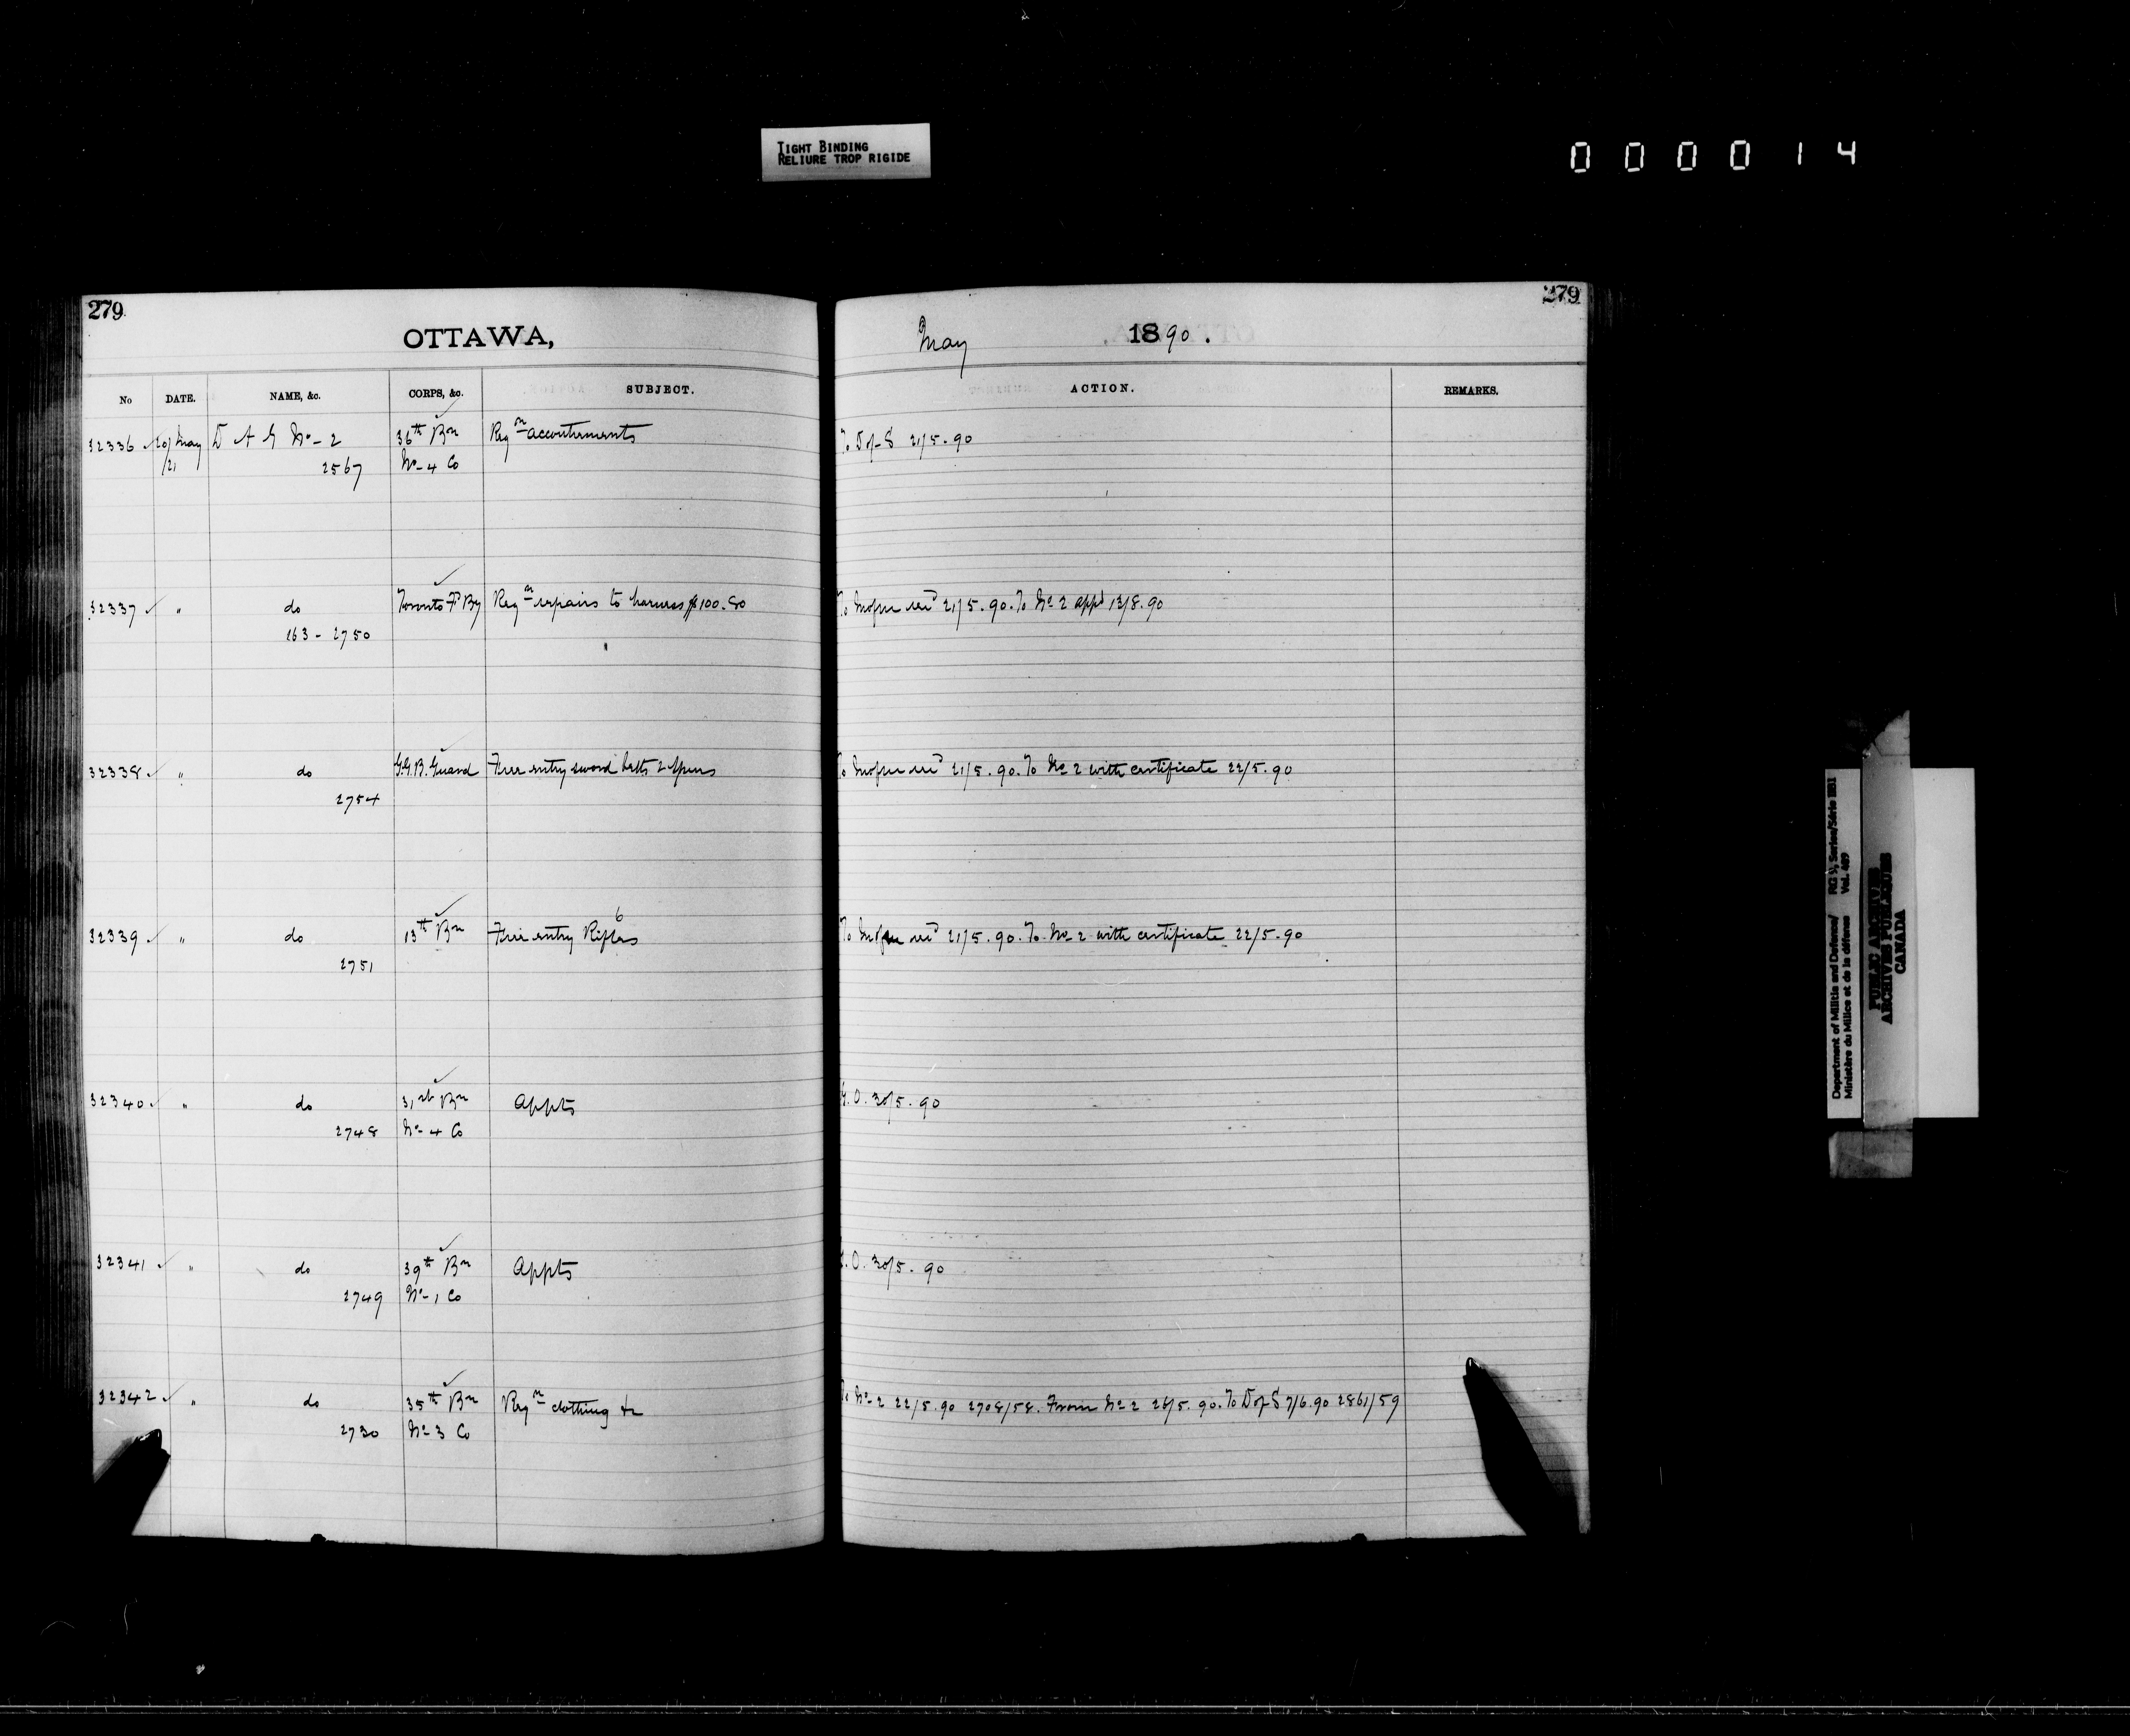 TIGHT BINDING
RELIURE TROP RIGIDE
000014
279
279
OTTAWA, May 1890.
No DATE. NAME, &c. CORPS, &c. SUBJECT. ACTION. REMARKS.
32336 20/May D A G No-2 36th Bn Reqn accoutrements To D of S 21/5.90
/21 2567 No-4 Co
32337 " do Toronto Fd By Reqn repairs to harness $100.80 To 21/5.90. To No 2 appd 13/8.90
263-2750
32338 " do G.G.B. Guard Free entry sword belts & spurs To 21/5.90. To No 2 with certificate 22/5.90
2754
6
32339 " do 13th Bn Free entry Rifles To 21/5.90. To No-2 with certificate 22/5.90
2751
32340 " do 31st Bn Appts G.O. 30/5.90
2748 No-4 Co
32341 " do 39th Bn Appts G.O. 30/5.90
2749 No-1 Co
32342 " do 35th Bn Reqn clothing &c To No-2 22/5.90 2708/58. From No-2 26/5.90. To D of S 7/6.90 2861/59
2730 No-3 Co
Department of Militia and Defence/ RG 9, Series/Série II B1
Ministère du Milice et de la défense Vol. 489
PUBLIC ARCHIVES
ARCHIVES PUBLIQUES
CANADA